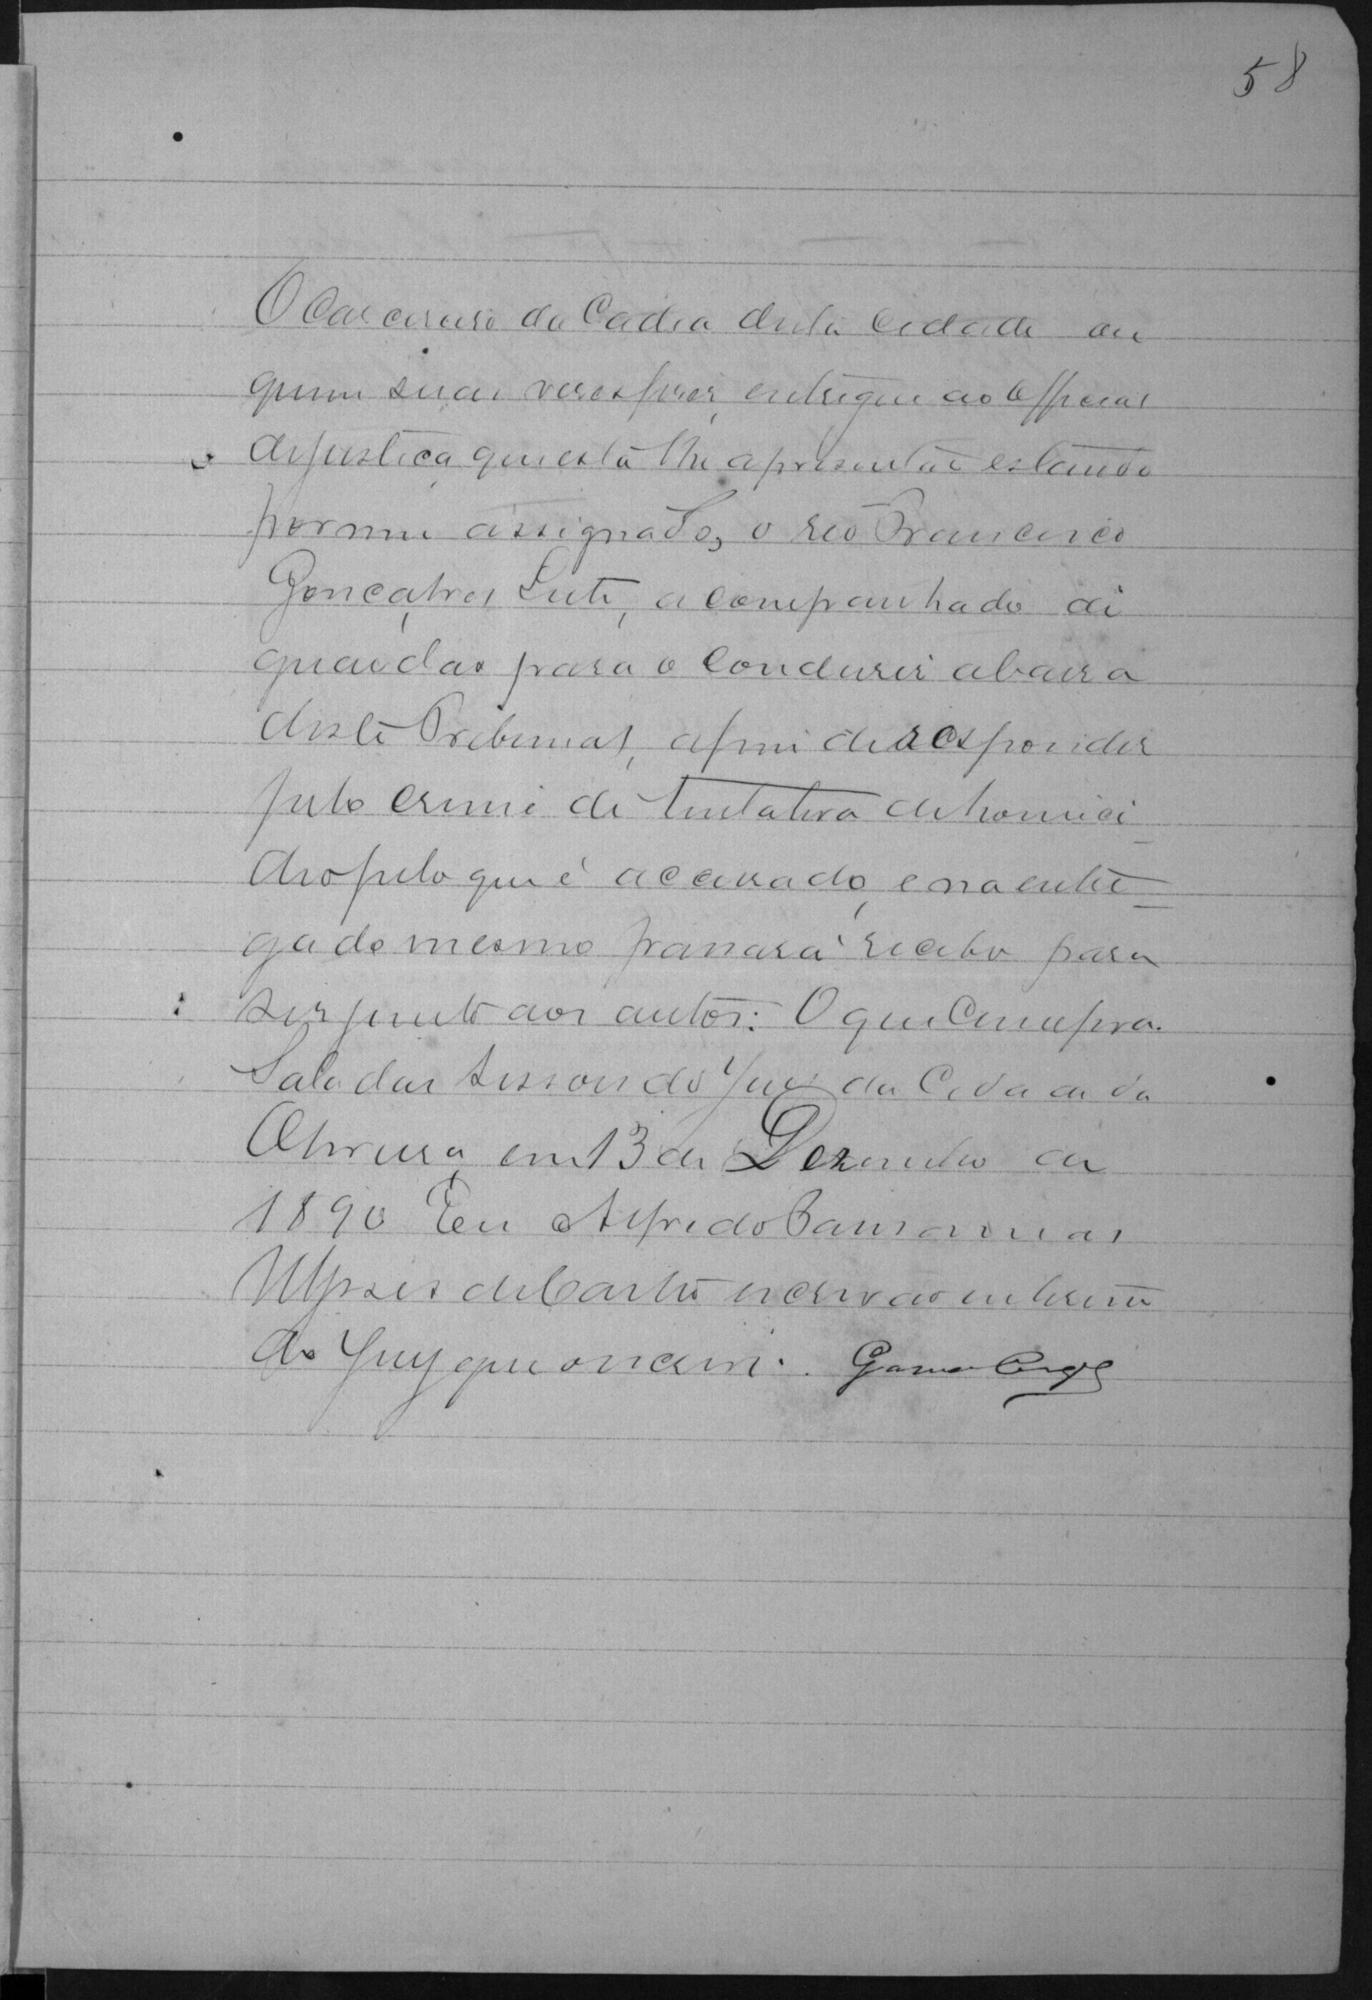 58
O Carcereiro da Cadea desta Cidade ou
quem suas veses fiser, entregue ao Official
de justiça que esta lhe apresentar estando
por mim assignado, o reo Francisco
Gonçalves Leite, acompanhado de
guardas para o condusir a barra
deste Tribunal, afim de responder
pelo crime de tentativa de homici
dio pelo que é accusado, e na entre
ga do mesmo passará recibo para
ser junto aos autos: O que Cumpra.
Sala das Sessoes do Jury da Cidade da
em 13 de Dezembro de
1890 Eu Alfredo
Ulysses de Castro escrivão interino
do Jury que o escrevi.